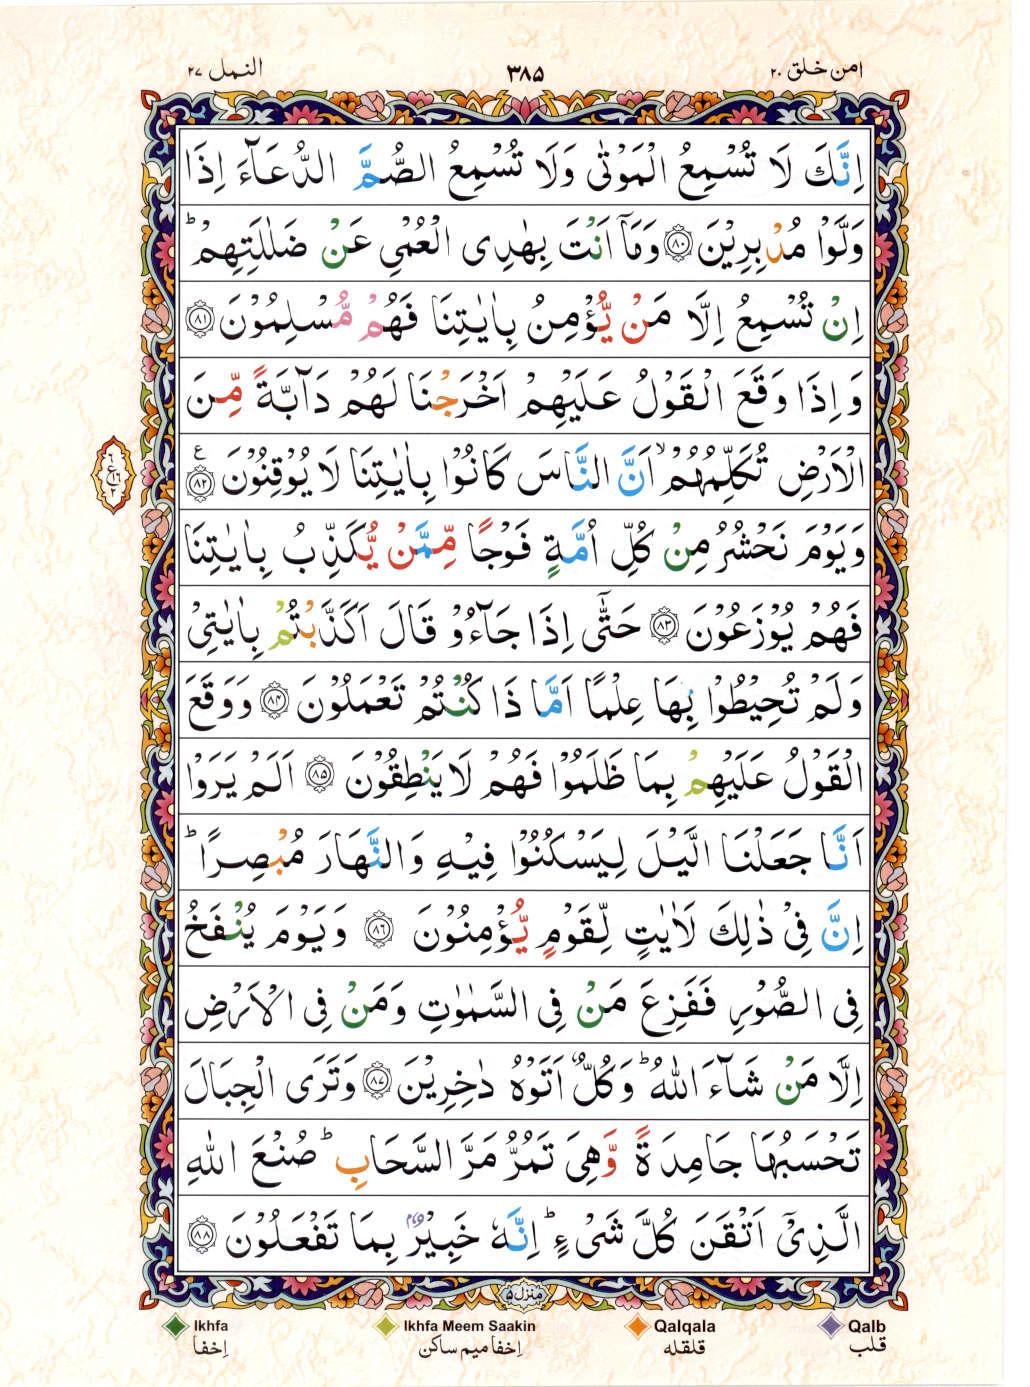 امن خلق ۲۰
۳۸۵
النمل ۲۷
اِنَّكَ لَا تُسْمِعُ الْمَوْتٰى وَلَا تُسْمِعُ الصُّمَّ الدُّعَآءَ اِذَا
وَلَّوْا مُدْبِرِيْنَ ﴿۸۰﴾ وَمَاۤ اَنْتَ بِهٰدِى الْعُمْىِ عَنْ ضَلٰلَتِهِمْ ؕ
اِنْ تُسْمِعُ اِلَّا مَنْ يُّؤْمِنُ بِاٰيٰتِنَا فَهُمْ مُّسْلِمُوْنَ ﴿۸۱﴾
وَاِذَا وَقَعَ الْقَوْلُ عَلَيْهِمْ اَخْرَجْنَا لَهُمْ دَآبَّةً مِّنَ
الْاَرْضِ تُكَلِّمُهُمْ ۙ اَنَّ النَّاسَ كَانُوْا بِاٰيٰتِنَا لَا يُوْقِنُوْنَ ﴿۸۲﴾ ع
وَيَوْمَ نَحْشُرُ مِنْ كُلِّ اُمَّةٍ فَوْجًا مِّمَّنْ يُّكَذِّبُ بِاٰيٰتِنَا
فَهُمْ يُوْزَعُوْنَ ﴿۸۳﴾ حَتّٰۤى اِذَا جَآءُوْ قَالَ اَكَذَّبْتُمْ بِاٰيٰتِىْ
وَلَمْ تُحِيْطُوْا بِهَا عِلْمًا اَمَّا ذَا كُنْتُمْ تَعْمَلُوْنَ ﴿۸۴﴾ وَوَقَعَ
الْقَوْلُ عَلَيْهِمْ بِمَا ظَلَمُوْا فَهُمْ لَا يَنْطِقُوْنَ ﴿۸۵﴾ اَلَمْ يَرَوْا
اَنَّا جَعَلْنَا الَّيْلَ لِيَسْكُنُوْا فِيْهِ وَالنَّهَارَ مُبْصِرًا ؕ
اِنَّ فِىْ ذٰلِكَ لَاٰيٰتٍ لِّقَوْمٍ يُّؤْمِنُوْنَ ﴿۸۶﴾ وَيَوْمَ يُنْفَخُ
فِى الصُّوْرِ فَفَزِعَ مَنْ فِى السَّمٰوٰتِ وَمَنْ فِى الْاَرْضِ
اِلَّا مَنْ شَآءَ اللّٰهُ ؕ وَكُلٌّ اَتَوْهُ دٰخِرِيْنَ ﴿۸۷﴾ وَتَرَى الْجِبَالَ
تَحْسَبُهَا جَامِدَةً وَّهِىَ تَمُرُّ مَرَّ السَّحَابِ ؕ صُنْعَ اللّٰهِ
الَّذِىْۤ اَتْقَنَ كُلَّ شَىْءٍ ؕ اِنَّهٗ خَبِيْرٌۢ بِمَا تَفْعَلُوْنَ ﴿۸۸﴾
منزل ۵
Ikhfa
اِخفا
Ikhfa Meem Saakin
اِخفا میم ساکن
Qalqala
قلقله
Qalb
قلب